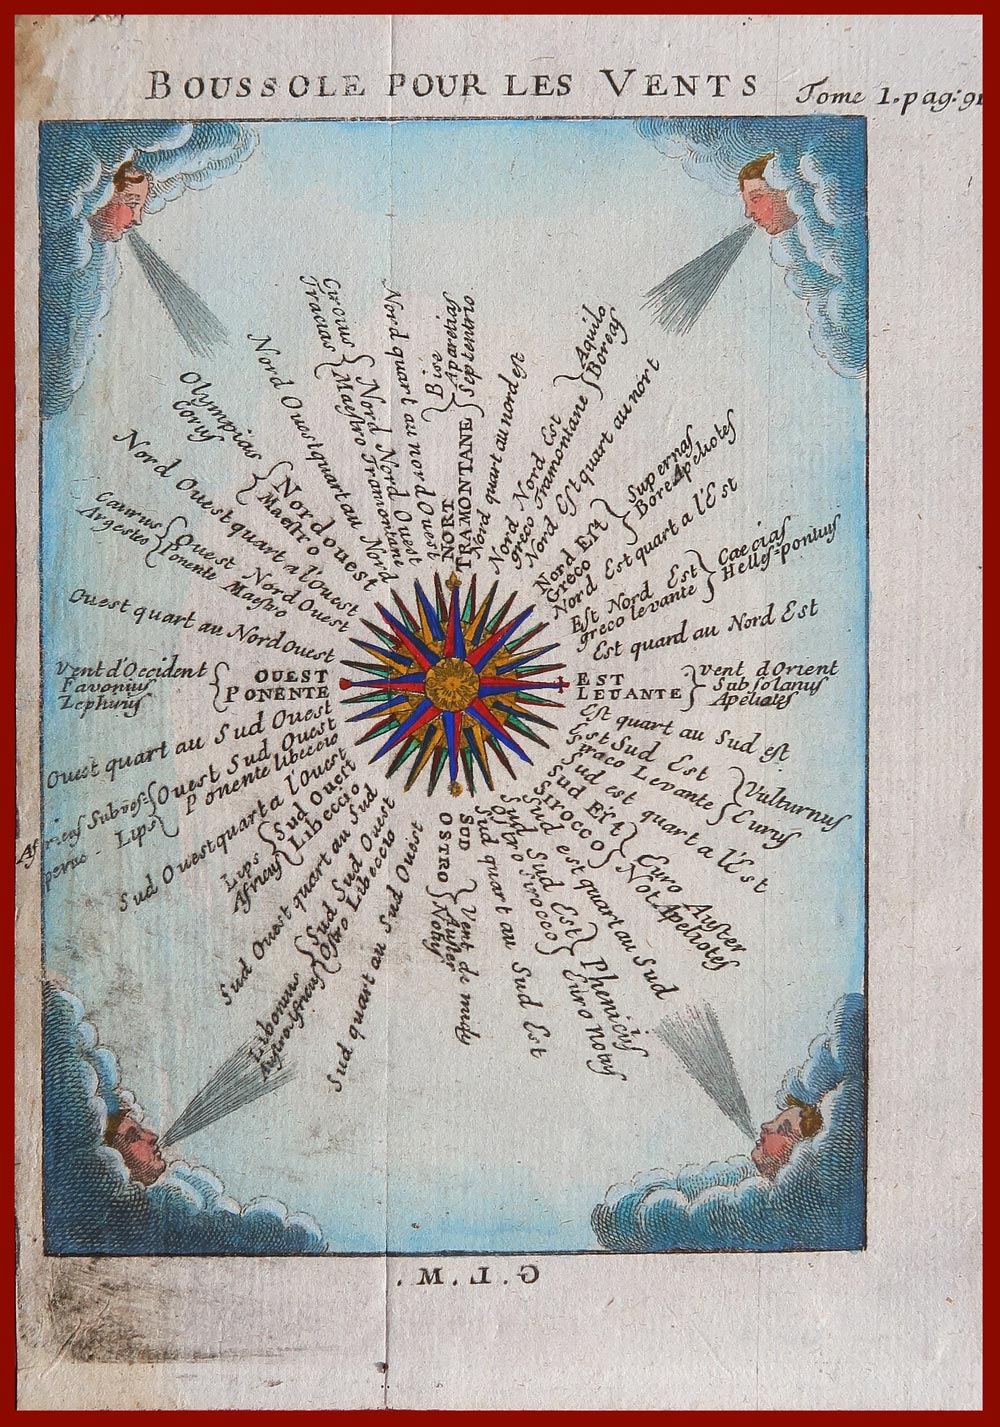 BOUSSOLE POUR LES VENTS
Tome 1. pag: 91
NORT
TRAMONTANE
Bise
Aparctias
Septentrio
Nord quart au nord est
Nord Nord Est
greco Tramontane
Aquilo
Boreas
Nord Est quart au nort
Nord Est
Greco
Supernas
Bore Apeliotes
Nord Est quart a l'Est
Est Nord Est
greco levante
Caecias
Helles-pontius
Est quard au Nord Est
EST
LEUANTE
vent d'Orient
Subsolanus
Apeliotes
Est quart au Sud est
Est Sud Est
Siraco Levante
Vulturnus
Eurus
Sud est quart a l'Est
Sud Est
Sirocco
Euro Auster
Not Apeliotes
Sud est quart au Sud
Sud Sud Est
Ostro Sirocco
Phenicius
Euro notus
Sud quart au Sud Est
SUD
OSTRO
Vent de midy
Auster
Notus
Sud quart au Sud Ouest
Sud Sud Ouest
Ostro Libeccio
Libonotus
Austro Africus
Sud Ouest quart au Sud
Sud Ouest
Libeccio
Lips
Africus
Sud Ouest quart a l'Ouest
Ouest Sud Ouest
Ponente libeccio
Africus Subves-
perus - Lips
Ouest quart au Sud Ouest
OUEST
PONENTE
Vent d'Occident
Favonius
Zephirus
Ouest quart au Nord Ouest
Ouest Nord Ouest
Ponente Maestro
Caurus
Argestes
Nord Ouest quart a l'Ouest
Nord ouest
Maestro
Olympias
Corus
Nord Ouest quart au Nord
Nord Nord Ouest
Maestro Tramontane
Circius
Tracias
Nord quart au nord Ouest
G.I.M.